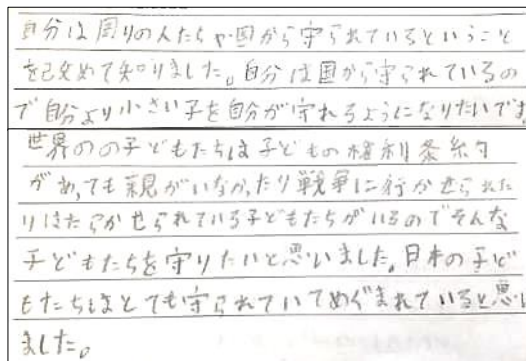 自分は周りの人たちや国から守られているということ
を改めて知りました。自分は国から守られているの
で自分より小さい子を自分が守れるようになりたいです
世界のの子どもたちは子どもの権利条約
があっても親がいなかったり戦争に行かせられた
りはたらかせられている子どもたちがいるのでそんな
子どもたちを守りたいと思いました。日本の子ど
もたちはとても守られていてめぐまれていると思い
ました。